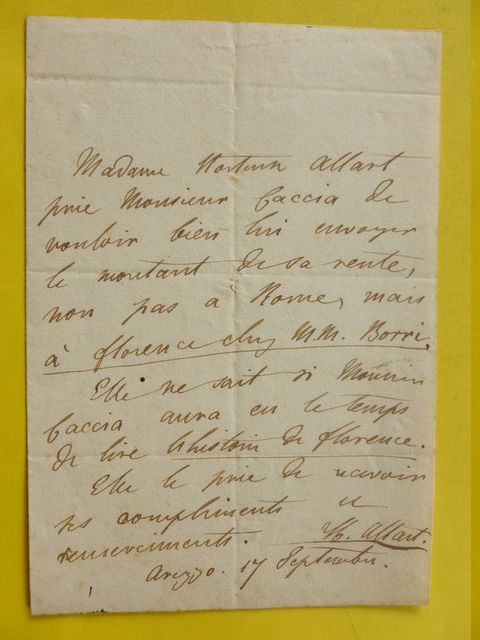 Madame Hortense Allart
prie Monsieur Caccia de
vouloir bien lui envoyer
le montant de sa rente,
non pas a Rome, mais
à florence chez M.M. Borri.
Elle ne sait si Monsieur
Caccia aura eu le temps
de lire l'histoire de florence.
Elle le prie de recevoir
ses compliments et
remerciements. H. Allart.
Arezzo. 17 Septembre.